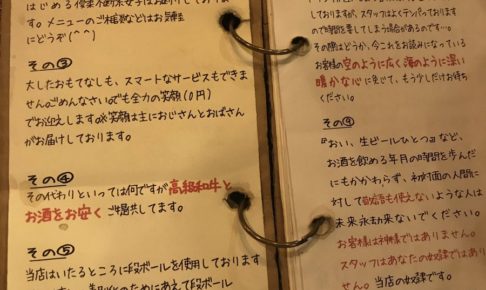 はじめる
す。メニューのご相談などはお気軽
にどうぞ(^^)
その③
大したおもてなしも、スマートなサービスもできま
せん。ごめんなさい。でも全力の笑顔(0円)
でお迎えします。※笑顔は主におじさんとおばさん
がお届けしております。
その④
その代わりといっては何ですが高級和牛と
お酒をお安くご提供してます。
その⑤
当店はいたるところに段ボールを使用しております
のためにあえて段ボール
しておりますが、スタッフはよくテンパっております
ので時間を要してしまう場合があるのです…。
その際はどうか、今これをお読みになっている
お客様の空のように広く海のように深い
暖かな心に免じて、もう少しだけお待ち
ください。
『おい、生ビールひとつ』など、
お酒を飲める年月の時間を歩んだ
にもかかわらず、初対面の人間に
対して敬語も使えないような人は
未来永劫来ないでください。
お客様は神様ではありません。
スタッフはあなたの奴隷ではあり
せん。当店の奴隷です。